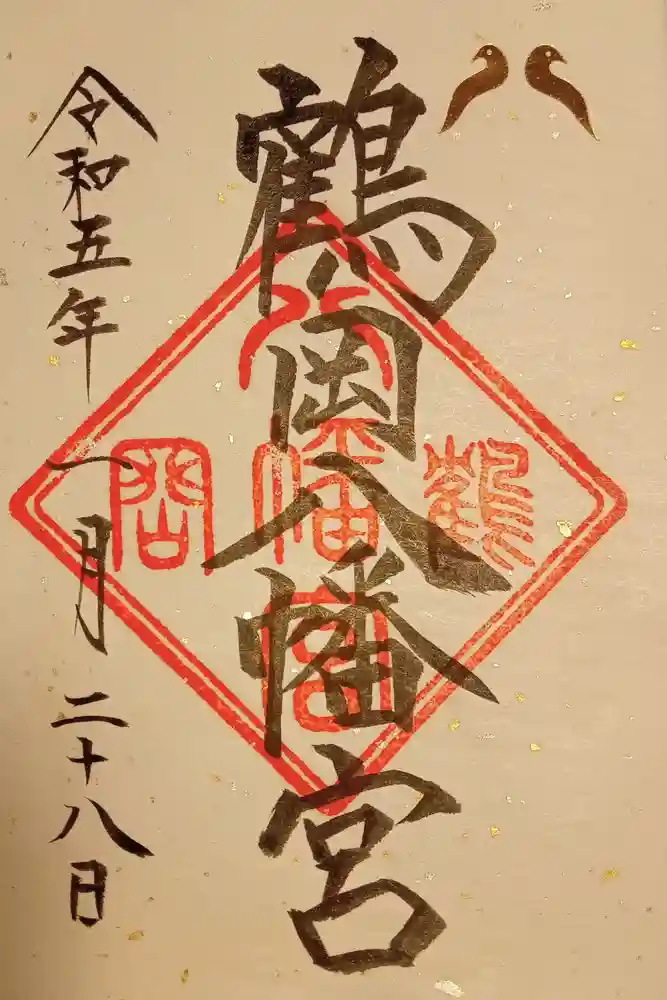 鶴岡八幡宮
鶴
八
幡
宮
岡
令和五年一月二十八日